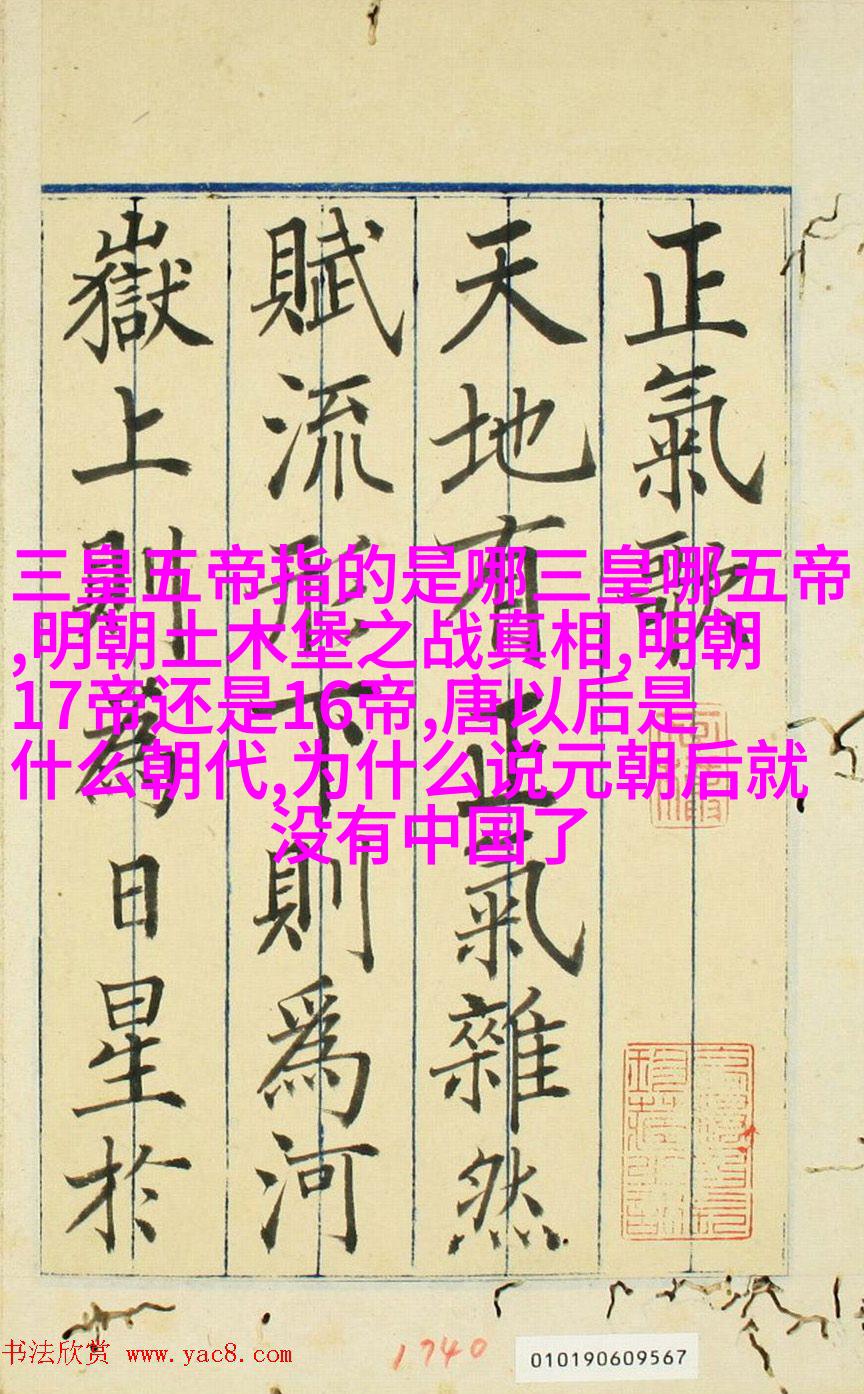 正氣歌
天地有正氣雜然
賦流形下則為河
嶽上則為日星於
三皇五帝指的是哪三皇哪五帝
,明朝土木堡之战真相,明朝
17帝还是16帝,唐以后是
什么朝代,为什么说元朝后就
没有中国了
书法欣赏 www.yac8.com
1740
010190609567